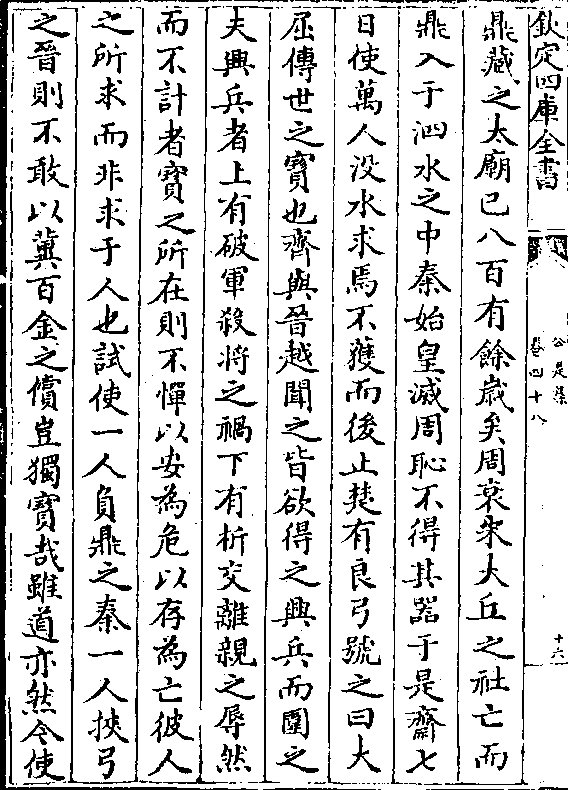 欽定四庫全書
公是集
卷四十八
十六
鼎藏之太廟已八百有餘歲矣周衰宋大丘之社亡而
鼎入于泗水之中秦始皇滅周恥不得其器于是齋七
日使萬人没水求焉不獲而後止楚有良弓號之曰大
屈傳世之寶也齊與晉越聞之皆欲得之興兵而圍之
夫興兵者上有破軍殺将之禍下有析交離親之辱然
而不計者寶之所在則不憚以安為危以存為亡彼人
之所求而非求于人也試使一人負鼎之秦一人挾弓
之晉則不敢以冀百金之價豈獨寶哉雖道亦然今使